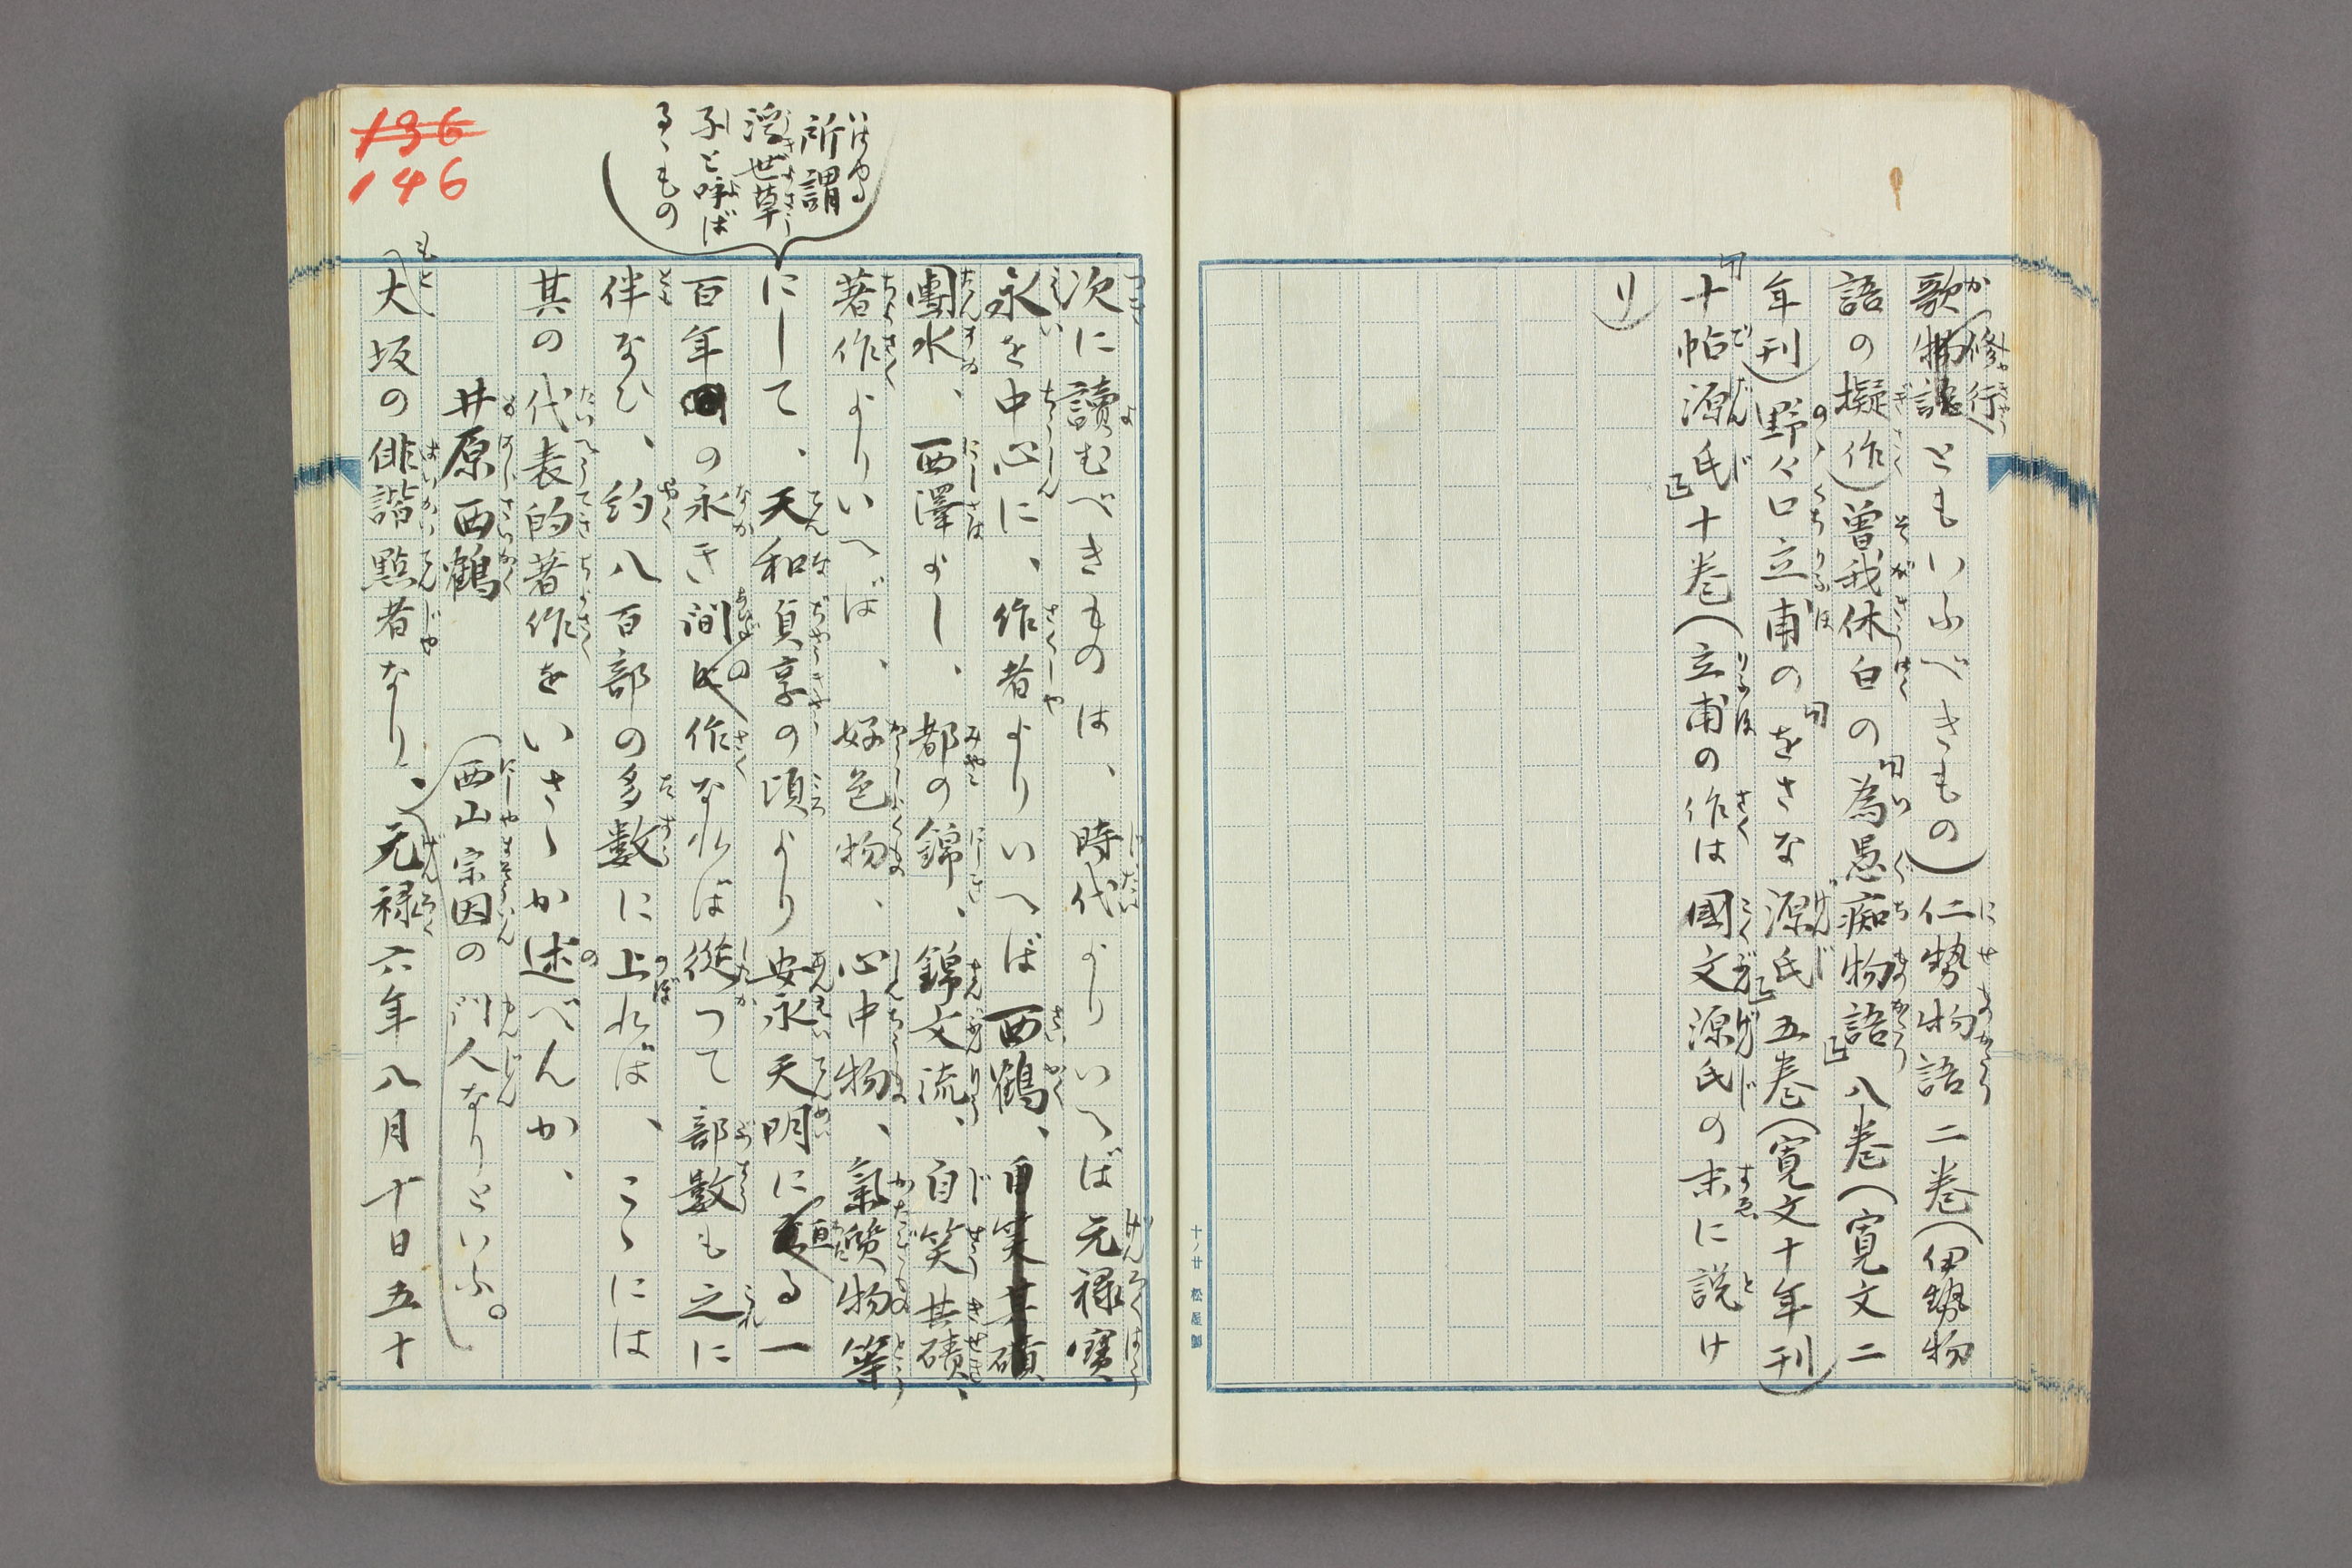 歌修行ともいふべきもの)仁勢物語二巻(伊勢物
語の擬作)曽我休自の為愚痴物語八巻(寛文二
年刊)野々口立甫のをさな源氏五巻(寛文十年刊)
十帖源氏十巻(立甫の作は國文源氏の末に説け
り)
十ノ廿 松屋製
次に讀むべきものは、時代よりいへば元禄寳
永を中心に、作者よりいへば西鶴、
團水、西澤よし、都の錦、錦文流、自笑其磧、
著作よりいへば、好色物、心中物、氣質物等
所謂
浮世草
子と呼ば
るゝもの
にして、天和貞享の頃より安永天明に亘る一
百年の永き間の作なれば従つて部数も之に
伴なひ、約八百部の多数に上れば、こゝには
其の代表的著作をいさゝか述べんか、
井原西鶴 (西山宗因の門人なりといふ。
もと大坂の俳諧點者なり、元禄六年八月十日五十
136
146